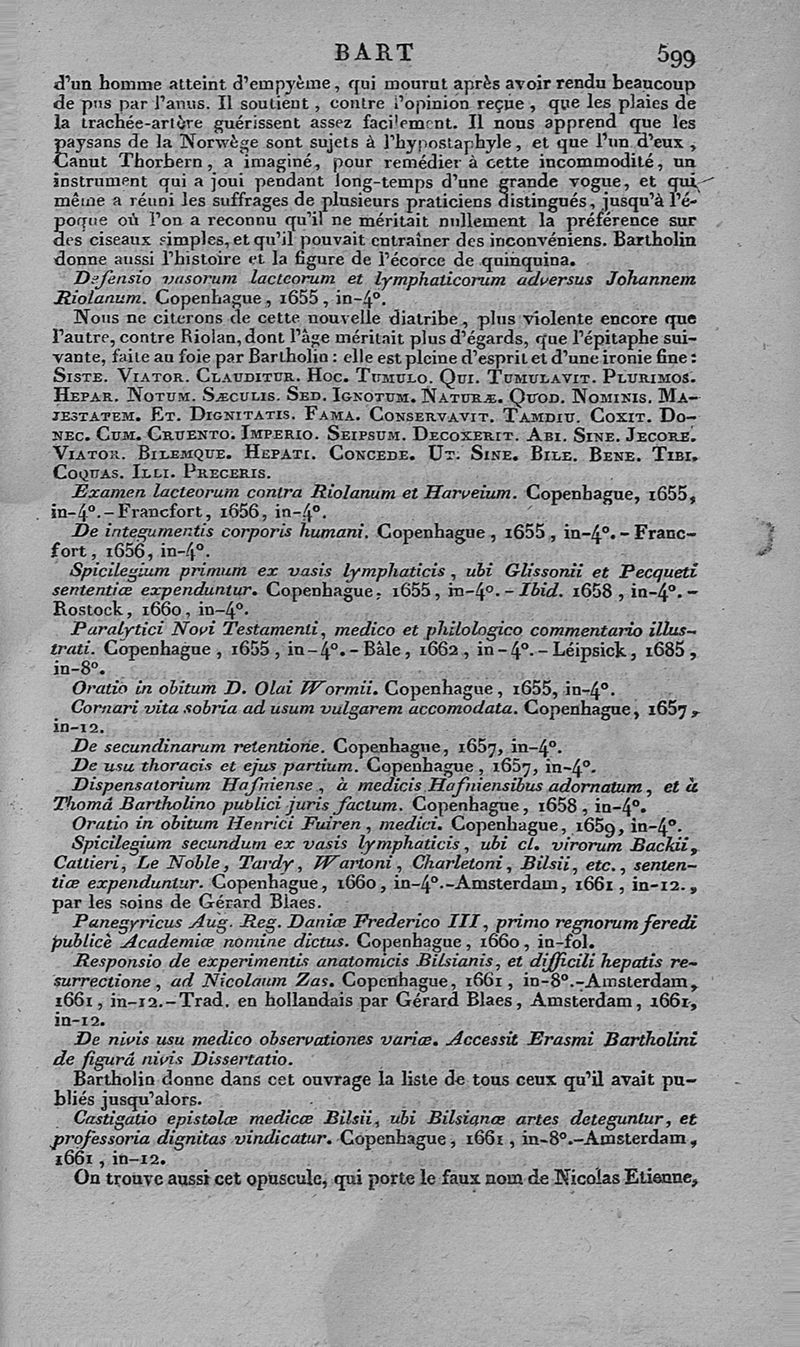 BART 599
d'un homme atteint d'empyème, qui mourut après avoir rendu beaucoup
de pus par l'anus. Il soutient, contre l'opinion reçue, que les plaies de
la trachée-artère guérissent assez facilement. Il nous apprend que les
paysans de la Norwège sont sujets à l'hypostaphyle, et que l'un d'eux,
Canut Thorbern, a imaginé, pour remédier à cette incommodité, un
instrument qui a joui pendant long-temps d'une grande vogue, et qui
même a réuni les suffrages de plusieurs praticiens distingués, jusqu'à l'é-
poque où l'on a reconnu qu'il ne méritait nullement la préférence sur
des ciseaux simples, et qu'il pouvait entraîner des inconvéniens. Bartholin
donne aussi l'histoire et la figure de l'écorce de quinquina.
Defensio vasorum lacteorum et lymphaticorum adversus Johannem
Riolanum. Copenhague, 1655, in-4°.
Nous ne citerons de cette nouvelle diatribe, plus violente encore que
l'autre, contre Riolan, dont l'âge méritait plus d'égards, que l'épitaphe sui-
vante, faite au foie par Bartholin : elle est pleine d'esprit et d'une ironie fine :
SISTE. VIATOR. CLAUDITUR. HOC. TUMULO. QUI. TUMULAVIT. PLURIMOS.
HEPAR. NOTUM. SÆCULIS. SED. IGNOTUM. NATURÆ. QUOD. NOMINIS. MA-
JESTATEM. ET. DIGNITATIS. FAMA. CONSERVAVIT. TAMDIU. COXIT. DO-
NEC. CUM. CRUENTO. IMPERIO. SEIPSUM. DECOXERIT. ABI. SINE. JECORE.
VIATOR. BILEMQUE. HEPATI. CONCEDE. UT. SINE. BILE. BENE. TIBI.
COQUAS. ILLI. PRECERIS.
Examen lacteorum contra Riolanum et Harveium. Copenhague, 1655,
in-4°.-Francfort, 1656, in-4°.
De integumentis corporis humani. Copenhague, 1655, in-4°.-Franc-
fort, 1656, in-4°.
Spicilegium primum ex vasis lymphaticis, ubi Glissonii et Pecqueti
sententiæ expenduntur. Copenhague, 1655, in-4°.-Ibid. 1658, in-4°.-
Rostock, 1660, in-4°.
Paralytici Novi Testamenti, medico et philologico commentario illus-
trati. Copenhague, 1655, in-4°.-Bâle, 1662, in-4°.-Léipsick, 1685,
in-8°.
Oratio in obitum D. Olai Wormii. Copenhague, 1655, in-4°.
Cornari vita sobria ad usum vulgarem accomodata. Copenhague, 1657,
in-12.
De secundinarum retentione. Copenhague, 1657, in-4°.
De usu thoracis et ejus partium. Copenhague, 1657, in-4°.
Dispensatorium Hafniense, à medicis Hafniensibus adornatum, et à
Thomâ Bartholino publici juris factum. Copenhague, 1658, in-4°.
Oratio in obitum Henrici Fuiren, medici. Copenhague, 1659, in-4°.
Spicilegium secundum ex vasis lymphaticis, ubi cl. virorum Backii,
Cattieri, Le Noble, Tardy, Wartoni, Charletoni, Bilsii, etc., senten-
tiæ expenduntur. Copenhague, 1660, in-4°.-Amsterdam, 1661, in-12.,
par les soins de Gérard Blaes.
Panegyricus Aug. Reg. Daniæ Frederico III, primo regnorum feredi
publicè Academiæ nomine dictus. Copenhague, 1660, in-fol.
Responsio de experimentis anatomicis Bilsianis, et difficili hepatis re-
surrectione, ad Nicolaum Zas. Copenhague, 1661, in-8°.-Amsterdam,
1661, in-12.-Trad. en hollandais par Gérard Blaes, Amsterdam, 1661,
in-12.
De nivis usu medico observationes variæ. Accessit Erasmi Bartholini
de figurâ nivis Dissertatio.
Bartholin donne dans cet ouvrage la liste de tous ceux qu'il avait pu-
bliés jusqu'alors.
Castigatio epistolæ medicæ Bilsii, ubi Bilsianæ artes deteguntur, et
professoria dignitas vindicatur. Copenhague, 1661, in-8°.-Amsterdam,
1661, in-12.
On trouve aussi cet opuscule, qui porte le faux nom de Nicolas Etienne,